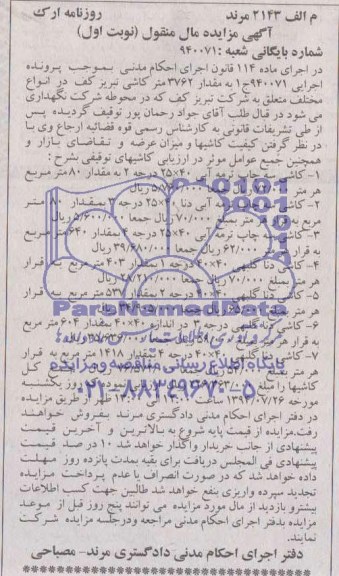 م الف ۲۱۴۳ مرند روزنامه ارک
آگهی مزایده مال منقول (نوبت اول)
شماره بایگانی شعبه : ۹۴۰۰۷۱
در اجرای ماده ۱۱۴ قانون اجرای احکام مدنی بموجب پرونده
اجرایی ۹۴۰۰۷۱ج۱ به مقدار ۳۷۶۲متر کاشی تبریز کف در انواع
مختلف متعلق به شرکت تبریز کف که در محوطه شرکت نگهداری
می شود در قبال طلب آقای جواد رحمان پور توقیف گردیده پس
از طی تشریفات قانونی به کارشناس رسمی قوه قضائیه ارجاع وی با
در نظر گرفتن کیفیت کاشیها و میزان عرضه و تقاضای بازار و
همچنین جمیع عوامل موثر در ارزیابی کاشیهای توقیفی بشرح :
۱- کاشی سه چاپ ترمه آبی ۴۰×۲۵ درجه ۲ به مقدار ۸۰متر مربع
هر متر ریال
۲- کاشی آبی دنا ۴۰×۲۵ درجه ۳ بمقدار ۸۰ متر
مربع به قرار هر متر بمبلغ ۷۰/۰۰۰ ریال جمعا ۵/۶۰۰/۰۰۰ ریال
۳- کاشی سه چاپ ترمه آبی ۴۰×۲۵ درجه ۴ بمقدار ۶۴۰ متر مربع
به قرار ۶۲/۰۰۰ ریال جمعا ۳۹/۶۸۰/۰۰۰ ریال
۴- کاشی دنا گلبهی ۴۰×۴۰ درجه ۱ بمقدار ۴۰۳ متر مربع به قرار
هر متر بمبلغ ۷۰/۰۰۰ ریال جمعا ۲۸/۲۱۰/۰۰۰ ریال
۵- کاشی دنا گلبهی ۴۰×۴۰ درجه ۲ بمقدار ۵۳۷ متر مربع به قرار
هر متر بمبلغ ریال
۶- کاشی دنا گلبهی درجه ۳ در اندازه ۴۰×۴۰ بمقدار ۶۰۴ متر مربع
به قرار هر متر ریال
۷- کاشی دنا گلبهی ۴۰×۴۰ درجه ۴ بمقدار ۱۴۱۸ متر مربع به قرار
هر متر بمبلغ کل
کاشیها را مبلغ روز یکشنبه
مورخه ۱۳۹۷/۰۷/۲۶ ساعت ظهر از طریق مزایده
در دفتر اجرای احکام مدنی دادگستری مرند بفروش خواهند
رفت.مزایده از قیمت پایه شروع به بالاترین و آخرین قیمت
پیشنهادی از جانب خریدار واگذار خواهد شد ۱۰ در صد قیمت
پیشنهادی فی المجلس دریافت برای بقیه بمدت پانزده روز مهلت
داده خواهد شد که در صورت انصراف یا عدم پرداخت مزایده
تجدید سپرده واریزی بنفع خواهد شد طالبین جهت کسب اطلاعات
بیشترو بازدید از مال مورد مزایده می توانند پنج روز قبل از موعد
مزایده بدفتر اجرای احکام مدنی مراجعه ودرجلسه مزایده شرکت
نمایند.
دفتر اجرای احکام مدنی دادگستری مرند- مصباحی
ParsNamadData
پایگاه اطلاع رسانی مناقصه و مزایده
۰۲۱-۸۸۳۴۹۶۷۰-۵